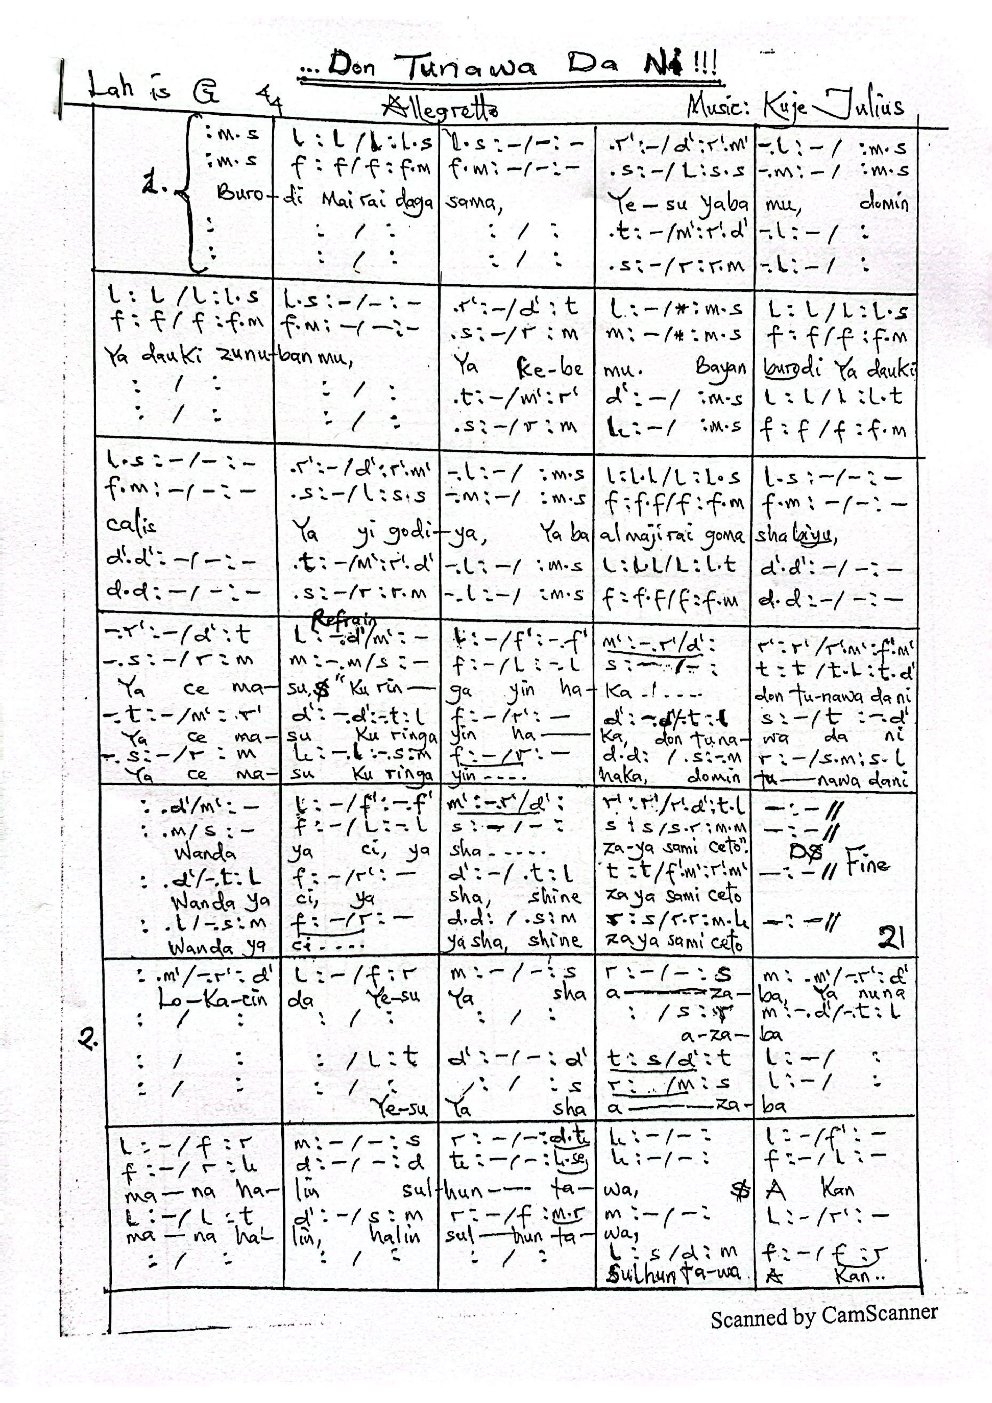 ...Don Tunawa Da Ni!!!
Lah is G 4/4 Allegretto Music: Kuje Julius
:m.s | l : l / l : l.s | l.s : – / – : – | .r' : – / d' : r'.m' | –.l : – / : m.s
1. :m.s | f : f / f : f.m | f.m : – / – : – | .s : – / l : s.s | –.m : – / : m.s
Buro–di Mai rai daga sama, Ye–su yaba mu, domin
: | : / : | : / : | .t : – / m' : r'.d' | –.l : – / :
: | : / : | : / : | .s : – / r : r.m | –.l : – / :
l : l / l : l.s | l.s : – / – : – | .r' : – / d' : t | l : – / * : m.s | l : l / l : l.s
f : f / f : f.m | f.m : – / – : – | .s : – / r : m | m : – / * : m.s | f : f / f : f.m
Ya dauki zunu–ban mu, Ya ke-be mu. Bayan burodi Ya dauki
: / : | : / : | .t : – / m' : r' | d' : – / : m.s | l : l / l : l.t
: / : | : / : | .s : – / r : m | l, : – / : m.s | f : f / f : f.m
l.s : – / – : – | .r' : – / d' : r'.m' | –.l : – / : m.s | l : l.l / l : l.s | l.s : – / – : –
f.m : – / – : – | .s : – / l : s.s | –.m : – / : m.s | f : f.f / f : f.m | f.m : – / – : –
calis Ya yi godi–ya, Ya ba almajirai goma sha biyu,
d'.d' : – / – : – | .t : – / m' : r'.d' | –.l : – / : m.s | l : l.l / l : l.t | d'.d' : – / – : –
d.d : – / – : – | .s : – / r : r.m | –.l : – / : m.s | f : f.f / f : f.m | d.d : – / – : –
Refrain
–.r' : – / d' : t | l : –.d' / m' : – | l : – / f' : –.f' | m' : –.r' / d' : | r' : r' / r'.m' : f'.m'
–.s : – / r : m | m : –.m / s : – | f : – / l : –.l | s : – / – : – | t : t / t.l : t.d'
Ya ce ma–su, $ "Ku rin–ga yin ha–ka .!.... don tu-nawa da ni
–.t : – / m' : .r' | d' : –.d' : –.t : l | f : – / r' : – | d' : –.d' / –.t : l | s : – / t : –.d'
Ya ce ma–su Ku ringa yin ha–ka, don tuna–wa da ni
–.s : – / r : m | l, : –.l, : –.s : m | f : – / r : – | d.d : / .s : –.m | r : – / s.m : s.l
Ya ce ma–su Ku ringa yin .... haka, domin tu–nawa dani
: .d' / m' : – | l : – / f' : –.f' | m' : –.r' / d' : | r' : r' / r'.d' : t.l | – : – //
: .m / s : – | f : – / l : –.l | s : – / – : | s : s / s.r : m.m | – : – //
Wanda ya ci, ya sha..... za-ya sami ceto". D$ Fine
: .d' / –.t : l | f : – / r' : – | d' : – / .t : l | t : t / f'.m' : r'.m' | – : – //
Wanda ya ci, ya sha, shine za ya sami ceto
: .l / –.s : m | f : – / r : – | d.d : / .s : m | r : s / r.r : m.l, | – : – //
Wanda ya ci.... yasha, shine zaya sami ceto 21
: .m' / –.r' : d' | l : – / f : r | m : – / – : s | r : – / – : s | m : .m' / –.r' : d'
Lo-Ka-cin da Ye-su Ya sha a–za–ba, Ya nuna
2. : / : | : / : | : / : | : / s : r | m : –.d' / –.t : l
a-za–ba
: / : | : / l : t | d' : – / – : d' | t : s / d' : t | l : – / :
: / : | : / : | / : / : s | r : .. / m : s | l : – / :
Ye-su Ya sha a–za–ba
l : – / f : r | m : – / – : s | r : – / – : d.t, | l, : – / – : | l : – / f' : –
f : – / r : l, | d : – / – : d | t, : – / – : l,.se, | l, : – / – : | f : – / l : –
ma–na ha–lin sul–hun–ta–wa, $ A Kan
l : – / l : t | d' : – / s : m | r : – / f : m.r | m : – / – : | l : – / r' : –
ma–na hal–lin, halin sul–hun ta–wa,
: / : | : / : | : / : | l : s / d : m | f : – / f : r
Sulhunta-wa A Kan..
Scanned by CamScanner